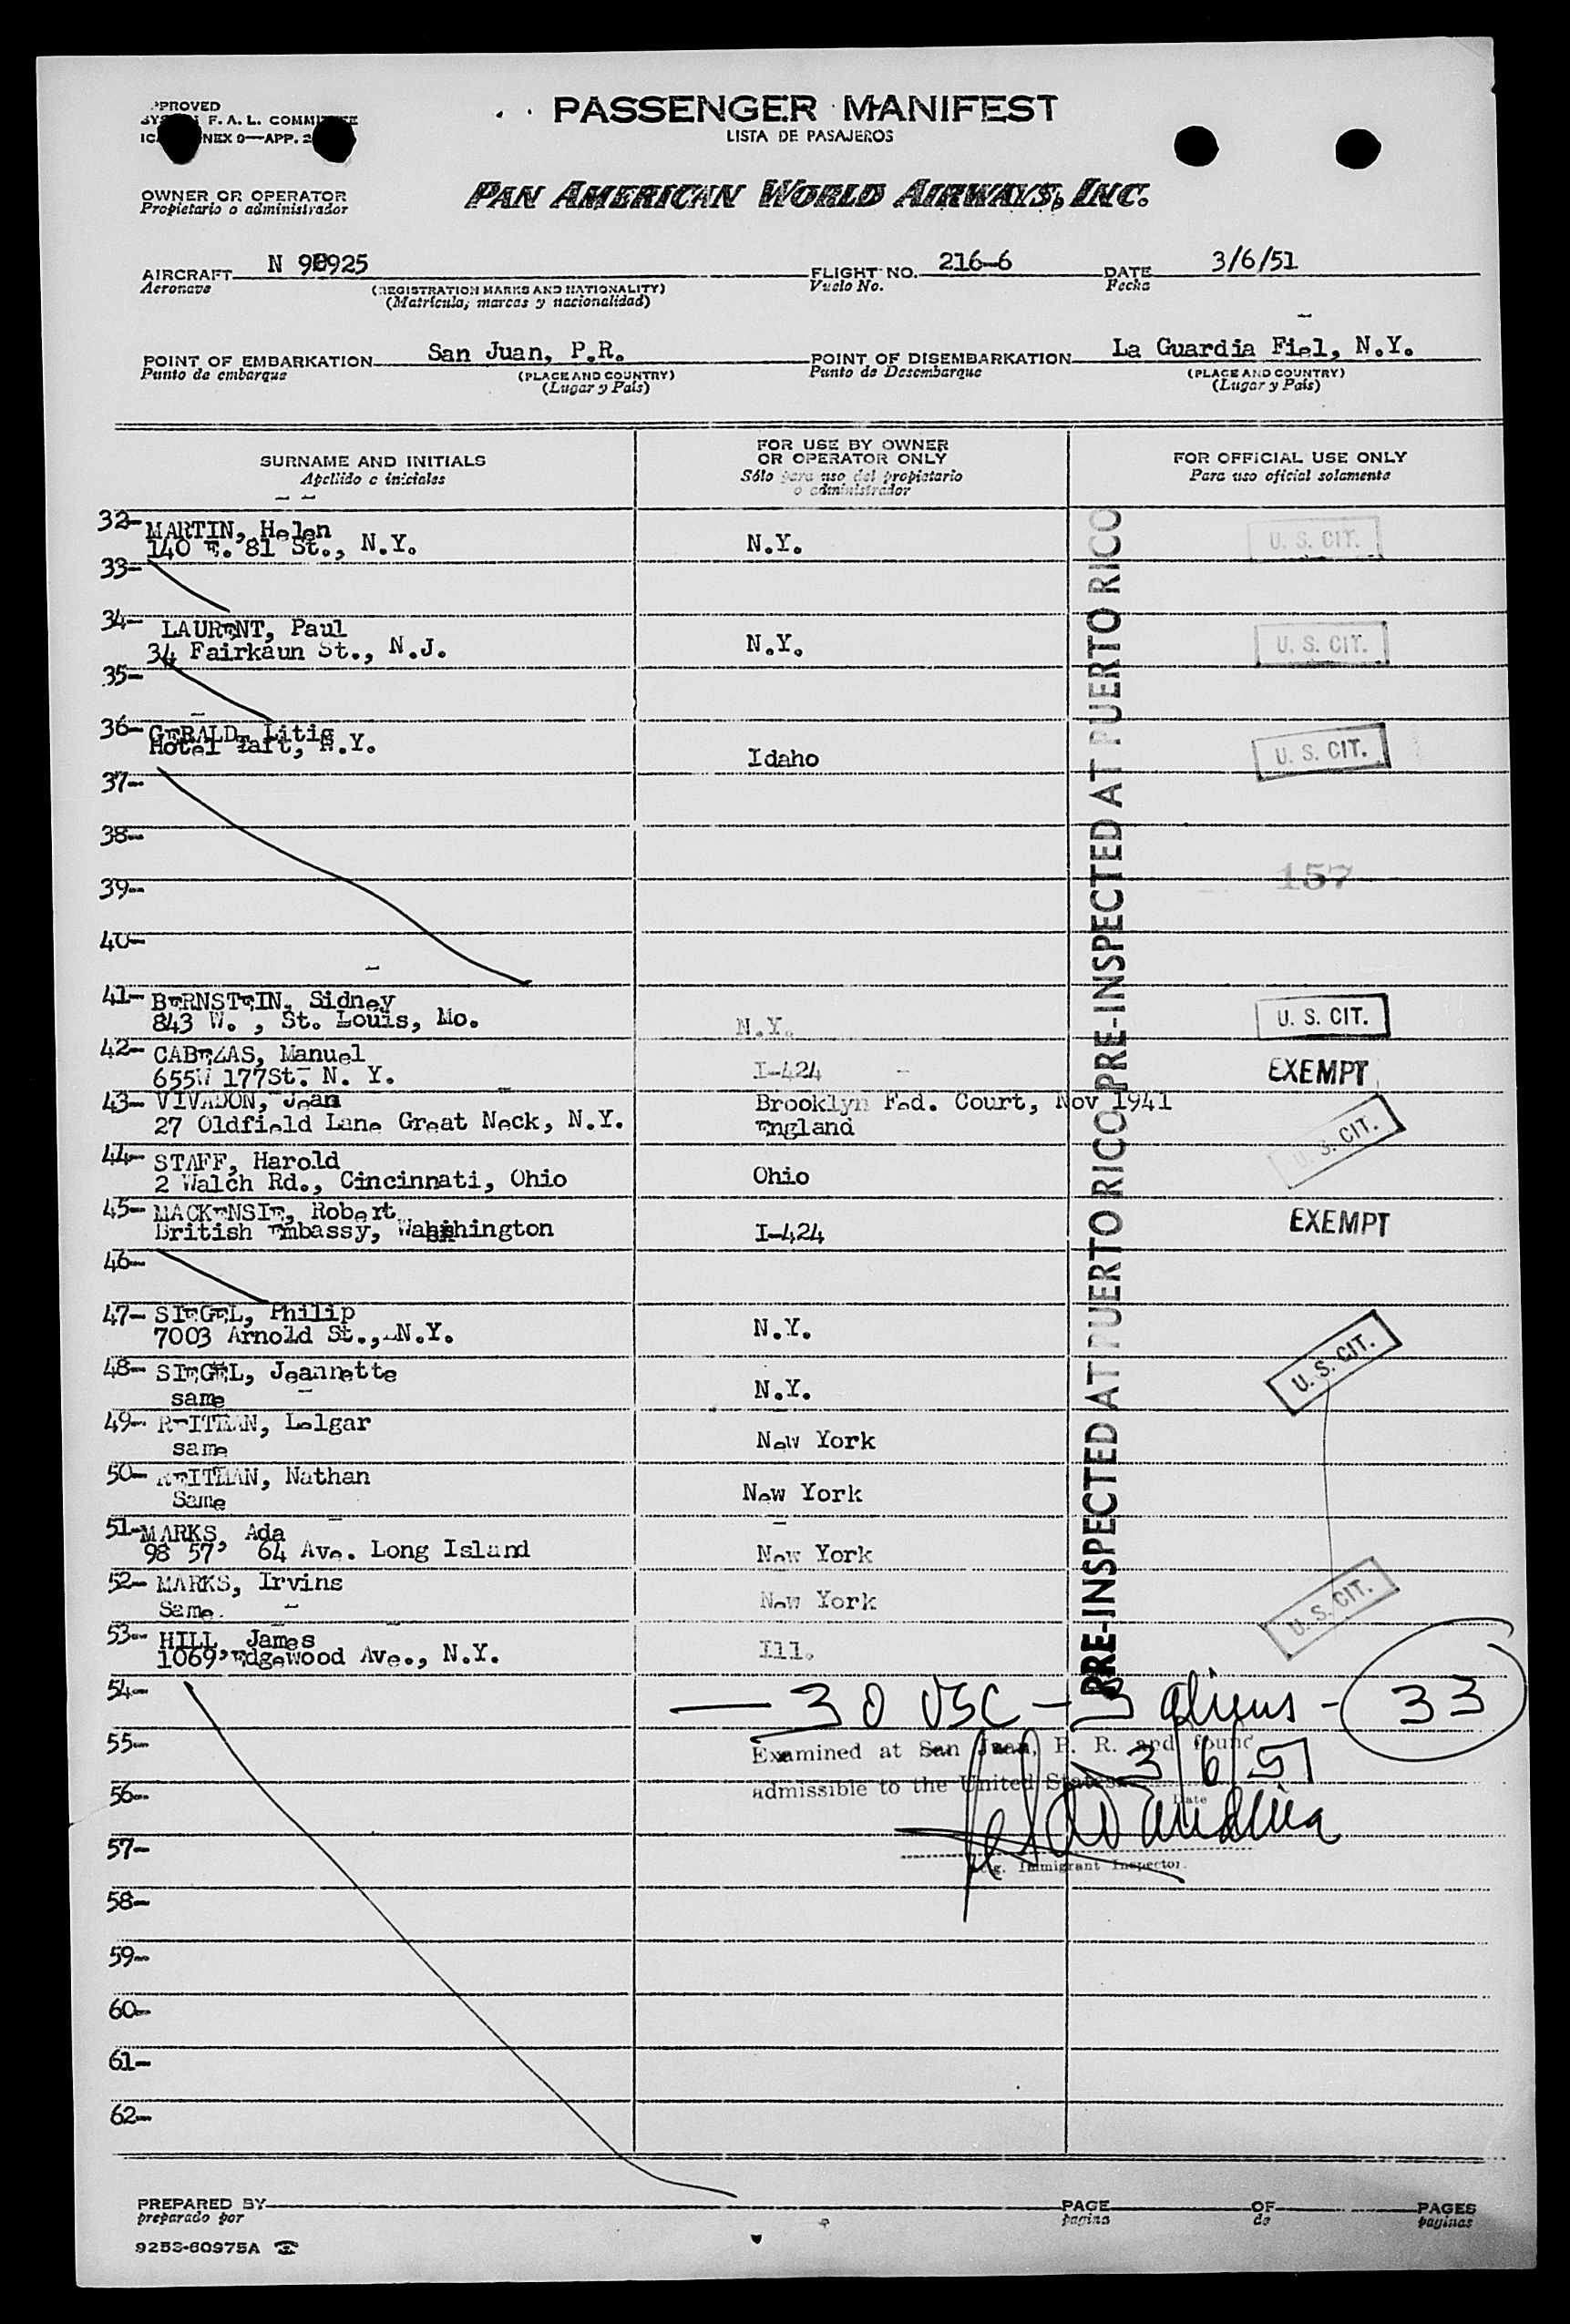 PASSENGER MANIFEST
LISTA DE PASAJEROS
PROVED
F. A. L. COMMI
NEX 9—APP. 2
OWNER OR OPERATOR
Propietario o administrador
PAN AMERICAN WORLD AIRWAYS, INC.
AIRCRAFT N 90925 FLIGHT NO. 216-6 DATE 3/6/51
Aeronave (REGISTRATION MARKS AND NATIONALITY) Vuelo No. Fecha
(Matrícula, marcas y nacionalidad)
POINT OF EMBARKATION San Juan, P.R. POINT OF DISEMBARKATION La Guardia Fiel, N.Y.
Punto de embarque (PLACE AND COUNTRY) Punto de Desembarque (PLACE AND COUNTRY)
(Lugar y País) (Lugar y País)
SURNAME AND INITIALS
Apellido e iniciales
FOR USE BY OWNER
OR OPERATOR ONLY
Sólo para uso del propietario
o administrador
FOR OFFICIAL USE ONLY
Para uso oficial solamente
PRE-INSPECTED AT PUERTO RICO PRE-INSPECTED AT PUERTO RICO
32- MARTIN, Helen
140 E. 81 St., N.Y. N.Y. U. S. CIT.
33-
34- LAURENT, Paul
34 Fairkaun St., N.J. N.Y. U. S. CIT.
35-
36- GERALD, Litig
Hotel Taft, N.Y. Idaho U. S. CIT.
37-
38-
39- 157
40-
41- BERNSTEIN, Sidney
843 W. , St. Louis, Mo. N.Y. U. S. CIT.
42- CABEZAS, Manuel
655W 177St. N. Y. I-424 EXEMPT
43- VIVADON, Jean Brooklyn Fed. Court, Nov 1941
27 Oldfield Lane Great Neck, N.Y. England U. S. CIT.
44- STAFF, Harold
2 Walch Rd., Cincinnati, Ohio Ohio
45- MACKENSIE, Robert
British Embassy, Washington I-424 EXEMPT
46-
47- SIEGEL, Philip
7003 Arnold St., N.Y. N.Y. U. S. CIT.
48- SIEGEL, Jeannette
same N.Y.
49- REITMAN, Lelgar
same New York
50- REITMAN, Nathan
Same New York
51- MARKS, Ada
98 57 64 Ave. Long Island New York
52- MARKS, Irvins
Same. New York U. S. CIT.
53- HILL, James
1069 Edgewood Ave., N.Y. Ill.
54- — 30 USC - 3 aliens - 33
55- Examined at San Juan, P. R. and found
admissible to the United States 3/6/51
56- Date
57-
Immigrant Inspector.
58-
59-
60-
61-
62-
PREPARED BY PAGE OF PAGES
preparado por pagina de paginas
9253-60975A